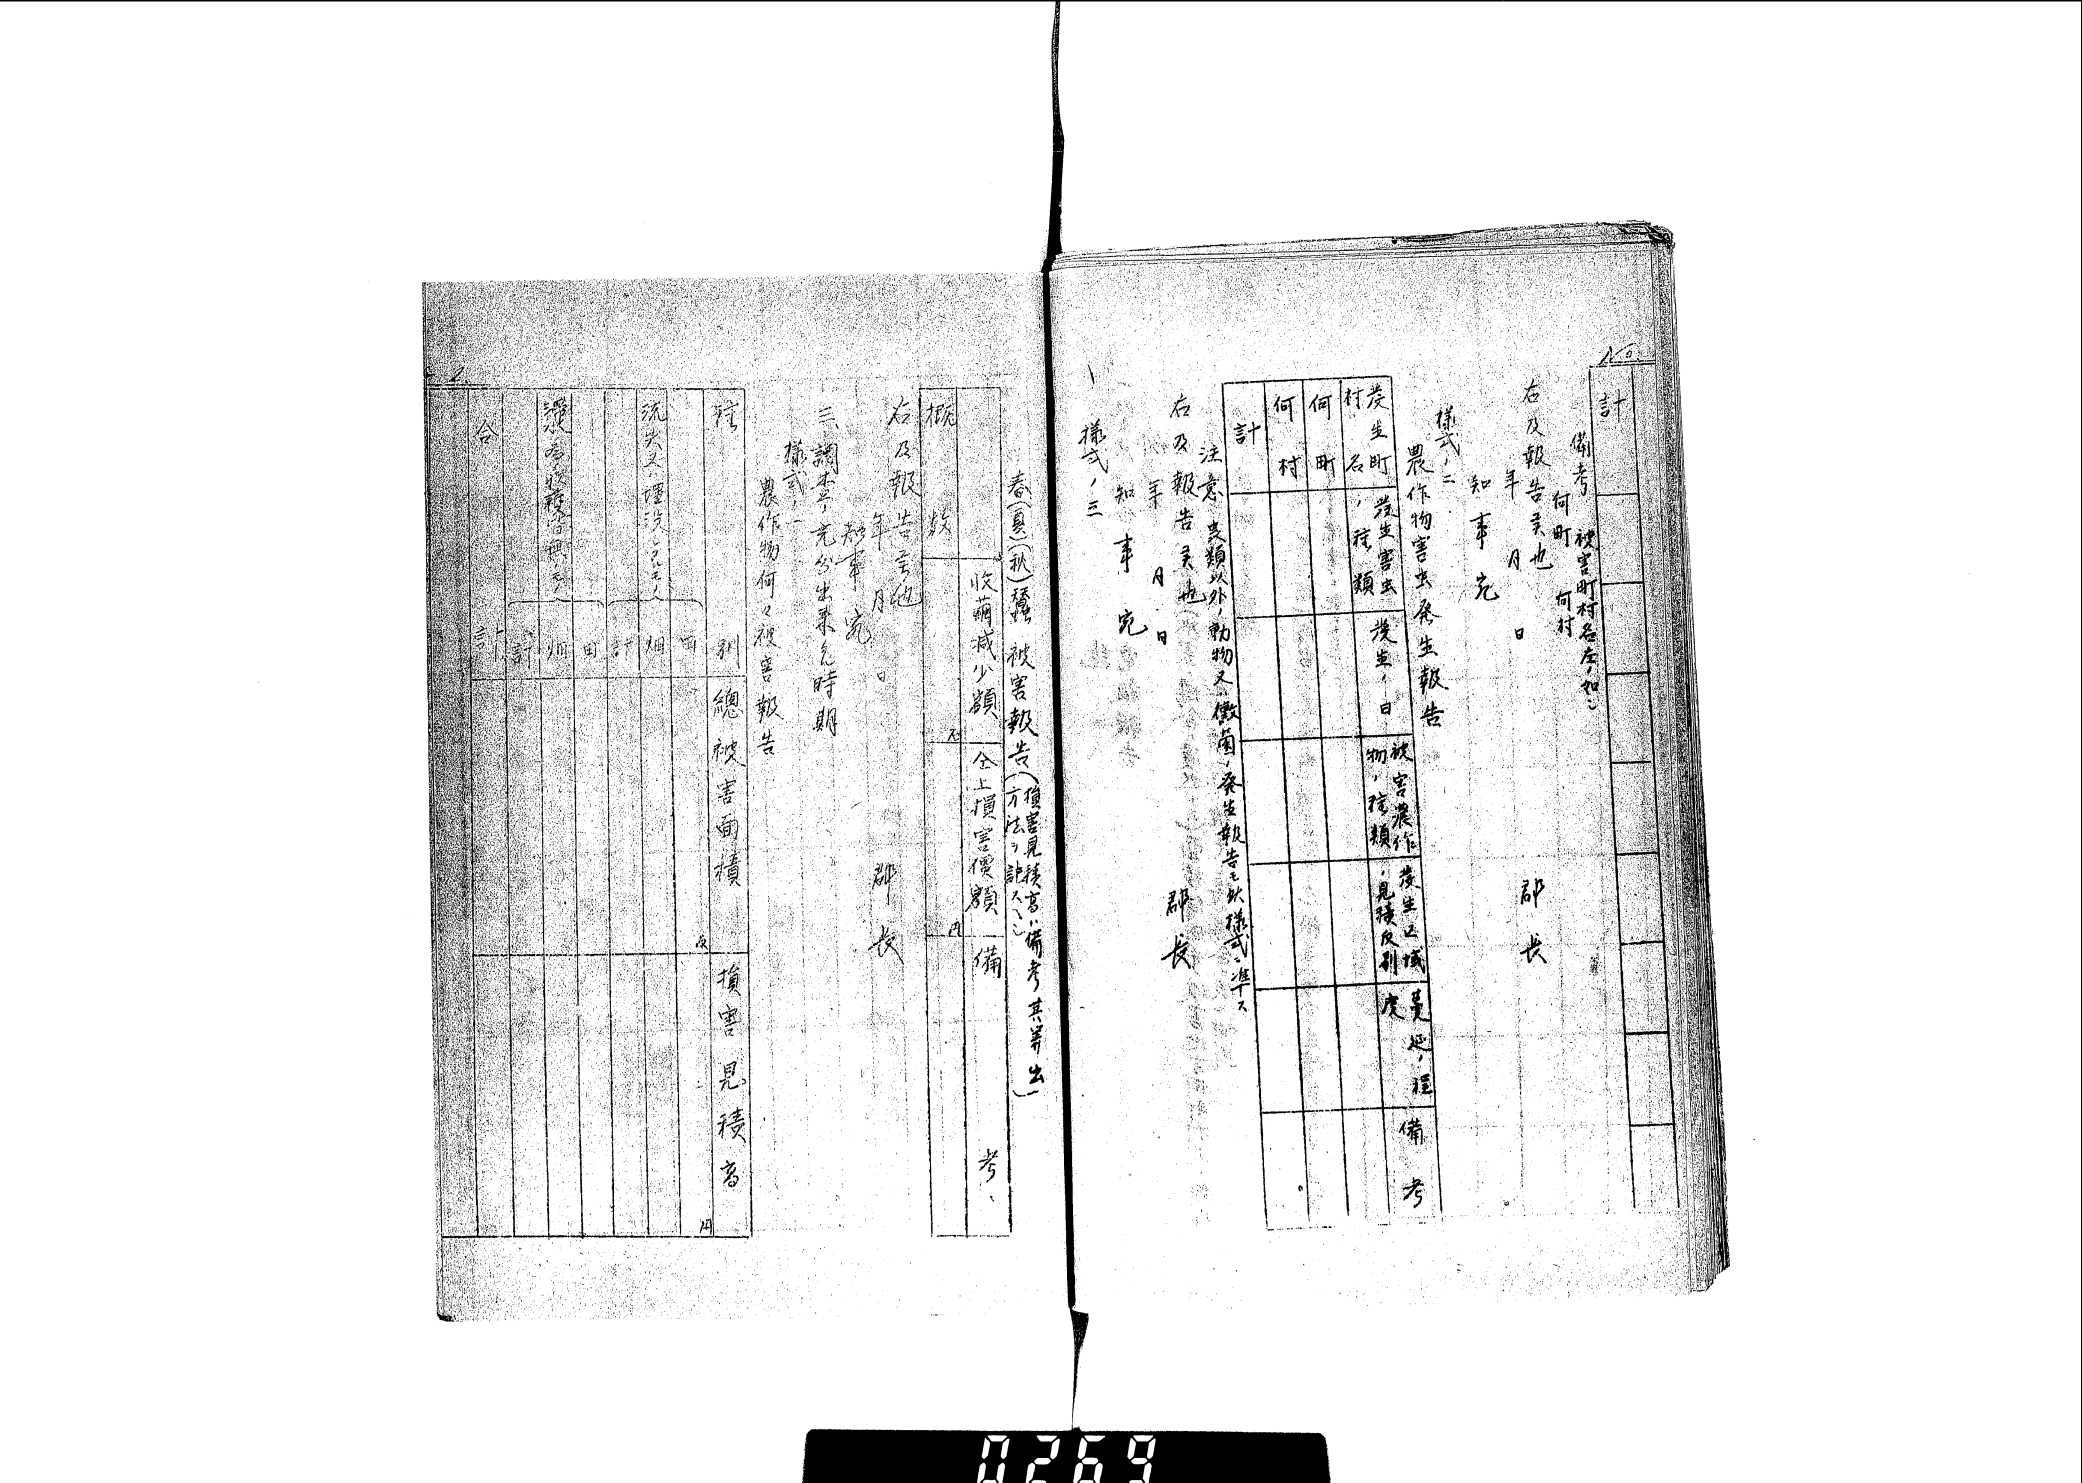 No.
計
備考 被害町村名左ノ如シ
何町 何村
右及報告候也
年 月 日
郡長
知事宛
様式ノ二
農作物害虫発生報告
発生町村名
発生害虫ノ種類
発生ノ月日
被害農作物ノ種類
発生区域ノ見積反別
蔓延ノ程度
備考
何町
何村
計
注意 虫類以外ノ動物又ハ黴菌ノ発生報告モ此様式ニ準ス
右及報告候也
年 月 日
郡長
知事宛
様式ノ三
春(夏)(秋)蚕被害報告(損害見積高ハ備考其算出方法ヲ記スヘシ)
収繭減少額 石
仝上損害価額 円
備考
概数
右及報告候也
年 月 日
郡長
知事宛
三、調査ノ充分出来タル時期
様式ノ一
農作物何々被害報告
種別
総被害面積 反
損害見積高 円
流失又ハ埋没シタルモノ
田
畑
計
浸水ノ為収穫皆無ノモノ
田
畑
計
合計
0269